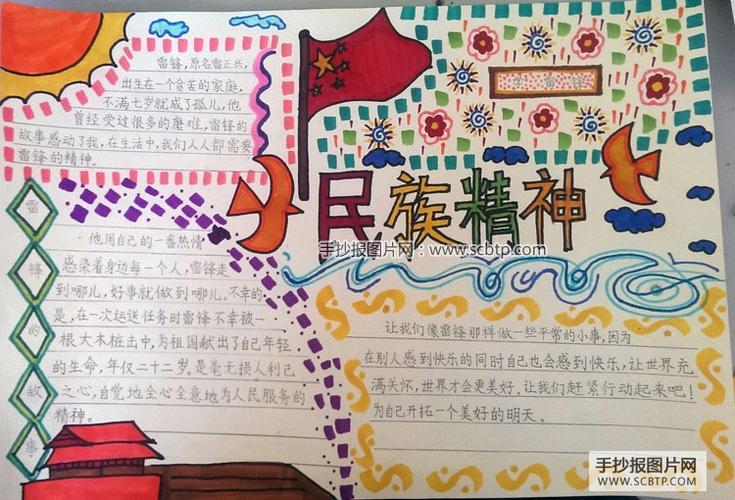 雷锋,原名雷正兴,
出生在一个贫苦的家庭,
不满七岁就成了孤儿,他
曾经受过很多的磨难,雷锋的
故事感动了我,在生活中,我们人人都需要
雷锋的精神。
学雷锋
民族精神
手抄报图片网:www.scbtp.com
雷锋的故事
他用自己的一番热情
感染着身边每一个人,雷锋走
到哪儿,好事就做到哪儿。不幸的
是,在一次运送任务时雷锋不幸被一
根大木桩击中,为祖国献出了自己年轻
的生命,年仅二十二岁。是毫无损人利己
之心,自觉地全心全意地为人民服务的
精神。
让我们像雷锋那样做一些平常的小事,因为
在别人感到快乐的同时自己也会感到快乐,让世界充
满关怀,世界才会更美好。让我们赶紧行动起来吧!
为自己开拓一个美好的明天。
手抄报图片网
WWW.SCBTP.COM